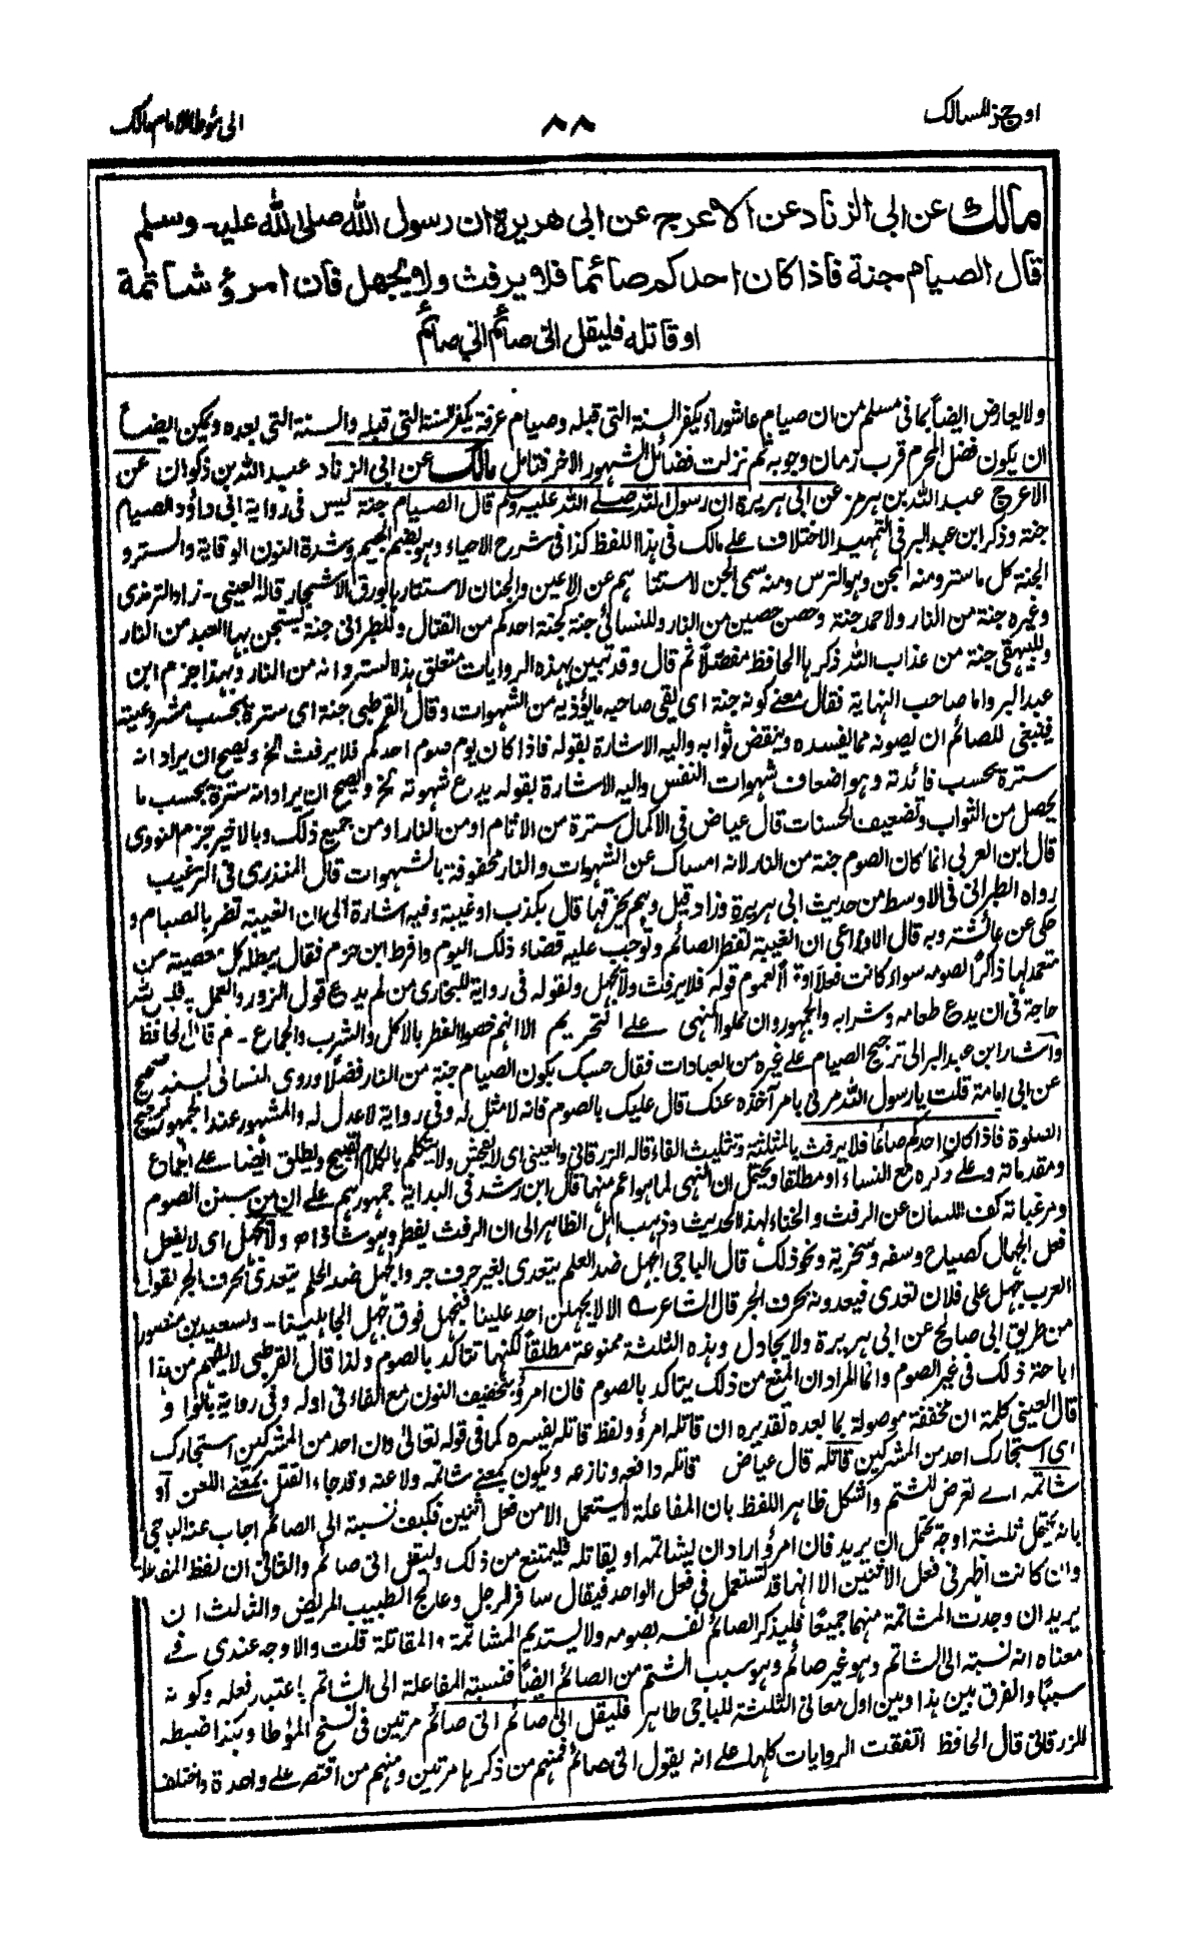 اوجز المسالك
٨٨
الى مؤطا الامام مالك
مالك عن ابى الزناد عن الاعرج عن ابى هريرة ان رسول الله صلى الله عليه وسلم
قال الصيام جنة فاذا كان احدكم صائما فلا يرفث ولا يجهل فان امرؤ شاتمة
او قاتله فليقل انى صائم انى صائم
ولا يعارض ايضا بما فى مسلم من ان صيام عاشوراء يكفر السنة التى قبله وصيام عرفة يكفر السنة التى قبله والسنة التى بعده ويمكن ايضاً
ان يكون فضل المحرم قرب زمان وجوبه ثم نزلت فضائل الشهور الاخر فتامل مالك عن ابى الزناد عبد الله بن ذكوان عن
الاعرج عبد الله بن هرمز عن ابى هريرة ان رسول الله صلے الله عليه وسلم قال الصيام جنة ليس فى رواية ابى داؤد الصيام
جنة وذكر ابن عبد البر فى التمهيد الاختلاف على مالك فى هذا اللفظ كذا فى شرح الاحياء وهو بضم الجيم وشدة النون الوقاية والستر و
الجنة كل ما ستر ومنه المجن وهو الترس ومنه سمى الجن لاستتا رهم عن الاعين والجنان لاستتار بالورق الاشجار قاله العينى - زاد الترمذى
وغيره جنة من النار ولاحمد جنة وحصن حصين من النار وللنسائى جنة كجنة احدكم من القتال وللطبرانى جنة يستجن بها العبد من النار
وللبيهقى جنة من عذاب الله ذكرها الحافظ مفصلاً ثم قال وقد تبين بهذه الروايات متعلق هذا الستر وانه من النار وبهذا جزم ابن
عبد البر واما صاحب النهاية فقال معنى كونه جنة اى يقى صاحبه ما يؤذيه من الشهوات وقال القرطبى جنة اى سترة بحسب مشروعيته
فينبغى للصائم ان يصونه مما يفسده وينقض ثوابه واليه الاشارة بقوله فاذا كان يوم صوم احدكم فلا يرفث الخ ويصح ان يراد انه
سترة بحسب فائدته وهو اضعاف شهوات النفس واليه الاشارة بقوله يدع شهوته الخ ويصح ان يراد انه سترة بحسب ما
يحصل من الثواب وتضعيف الحسنات قال عياض فى الاكمال سترة من الاثام او من النار او من جميع ذلك وبالاخير جزم النووى
قال ابن العربى انما كان الصوم جنة من النار لانه امساك عن الشهوات والنار محفوفة بالشهوات قال المنذرى فى الترغيب
رواه الطبرانى فى الاوسط من حديث ابى هريرة وزاد قيل وبم يخرقها قال بكذب او غيبة وفيه اشارة الى ان الغيبة تضر بالصيام و
حكى عن عائشة وبه قال الاوزاعى ان الغيبة تفطر الصائم وتوجب عليه قضاء ذلك اليوم وافرط ابن حزم فقال يبطله كل معصية من
متعمد لها ذاكرا لصومه سواء كانت فعلا او قولاً لعموم قوله فلا يرفث ولا يجهل ولقوله فى رواية للبخارى من لم يدع قول الزور والعمل به فليس لله
حاجة فى ان يدع طعامه وشرابه والجمهور وان حملوا النهى على التحريم الا انهم خصوا الفطر بالاكل والشرب والجماع - قال الحافظ
واشار ابن عبد البر الى ترجيح الصيام على غيره من العبادات فقال حسبك بكون الصيام جنة من النار فضلاً وروى النسائى بسند صحيح
عن ابى امامة قلت يا رسول الله مرنى بامر آخذه عنك قال عليك بالصوم فانه لا مثل له وفى رواية لا عدل له والمشهور عند الجمهور ترجيح
الصلوة فاذا كان احدكم صائما فلا يرفث بالمثلثة وتثليث الفاء قاله الزرقانى والعينى اى لا يفحش ولا يتكلم بالكلام القبيح ويطلق ايضا على الجماع
ومقدماته وعلى ذكره مع النساء او مطلقا ويحتمل ان النهى لما هو اعم منها قال ابن رشد فى البداية جمهورهم على ان من سنن الصوم
ومرغباته كف اللسان عن الرفث والخناء لهذا الحديث وذهب اهل الظاهر الى ان الرفث يفطر وهو شاذ ولا يجهل اى لا يفعل
فعل الجهال كصياح وسفه وسخرية ونحو ذلك قال الباجى الجهل ضد العلم يتعدى بغير حرف جر والجهل ضد الحلم يتعدى بحرف الجر لقول
العرب جهل على فلان تعدى فيعدونه بحرف الجر قال الشاعر الا لا يجهلن احد علينا فنجهل فوق جهل الجاهلينا - ولسعيد بن منصور
من طريق ابى صالح عن ابى هريرة ولا يجادل وهذه الثلثة ممنوعة مطلقاً لكنها تتاكد بالصوم ولذا قال القرطبى لا يفهم من هذا
اباحة ذلك فى غير الصوم وانما المراد ان المنع من ذلك يتاكد بالصوم فان امرؤ بتخفيف النون مع الفاء فى اوله وفى رواية بالواو و
قال العينى كلمة ان مخففة موصولة بما بعده تقديره ان قاتله امرؤ ولفظ قاتله يفسره كما فى قوله تعالى وان احد من المشركين استجارك
اى استجارك احد من المشركين قاتله قال عياض قاتله دافعه ونازعه ويكون بمعنى شاتمه ولاعنه وقد جاء القتل بمعنى اللعن او
شاتمه اے تعرض للشتم واشكل ظاهر اللفظ بان المفاعلة لا يستعمل الا من فعل اثنين فكيف نسبة الى الصائم اجاب عنه الباجى
بانه يحتمل ثلثة اوجه يحتمل ان يريد فان امرؤ اراد ان يشاتمه او يقاتله فليمتنع من ذلك وليقل انى صائم والثانى ان لفظ المفاعلة
وان كانت اظهر فى فعل الاثنين الا انها قد تستعمل فى فعل الواحد فيقال سافر الرجل وعالج الطبيب المريض والثالث ان
يريد ان وجدت المشاتمة منهما جميعاً فليذكر الصائم نفسه بصومه ولا يستديم المشاتمة والمقاتلة قلت والاوجه عندى فى
معناه انه نسبة الى الشاتم وهو غير صائم وهو سبب الشتم من الصائم ايضاً فنسبة المفاعلة الى الشاتم باعتبار فعله وكونه
سببا والفرق بين هذا وبين اول معانى الثلثة للباجى ظاهر فليقل انى صائم انى صائم مرتين فى نسخ المؤطا وبهذا ضبطه
الزرقانى قال الحافظ اتفقت الروايات كلها على انه يقول انى صائم فمنهم من ذكرها مرتين ومنهم من اقتصر على واحدة واختلف